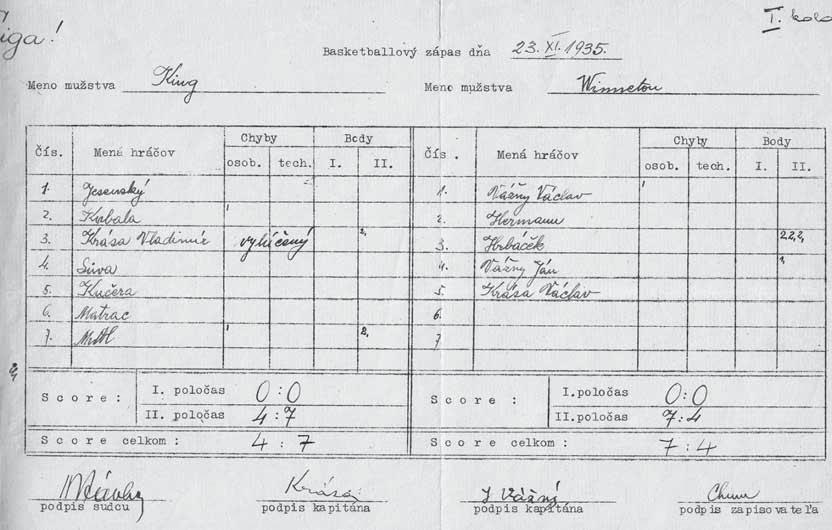 I. kolo
liga!
Basketballový zápas dňa 23. XI. 1935.
Meno mužstva King
Meno mužstva Winnetou
Čís. Mená hráčov Chyby Body
osob. tech. I. II.
1. Jesenský
2. Kubala 1
3. Krása Vladimír vylúčený 2,
4. Súva
5. Kučera
6. Matrac
7. 1 2,
Score: I. poločas 0:0
II. poločas 4:7
Score celkom: 4:7
Čís. Mená hráčov Chyby Body
osob. tech. I. II.
1. Vážny Václav 1
2. Hermann
3. Hrbáček 2,2,2,
4. Vážny Ján 1,
5. Krása Václav
6.
7
Score: I.poločas 0:0
II.poločas 7:4
Score celkom: 7:4
2,
Krása J Vážný
podpis sudcu podpis kapitána podpis kapitána podpis zapisovateľa